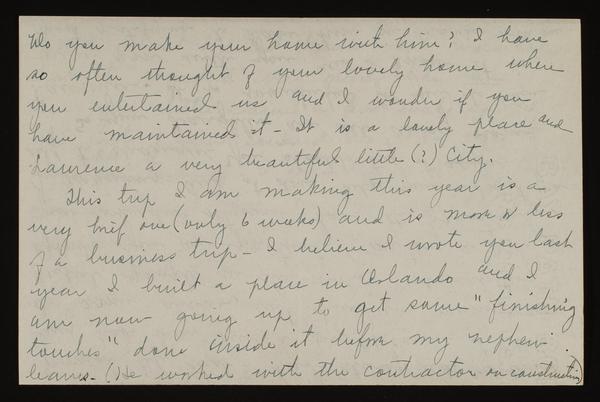 Do you make your home with him? I have
so often thought of your lovely home where
you entertained us and I wonder if you
have maintained it - It is a lovely place and
Lawrence a very beautiful little (?) City.
This trip I am making this year is a
very brief one (only 6 weeks) and is more or less
of a business trip - I believe I wrote you last
year I built a place in Orlando and I
am now going up to get some "finishing
touches" done inside it before my nephew
leaves. (He worked with the contractor on construction)